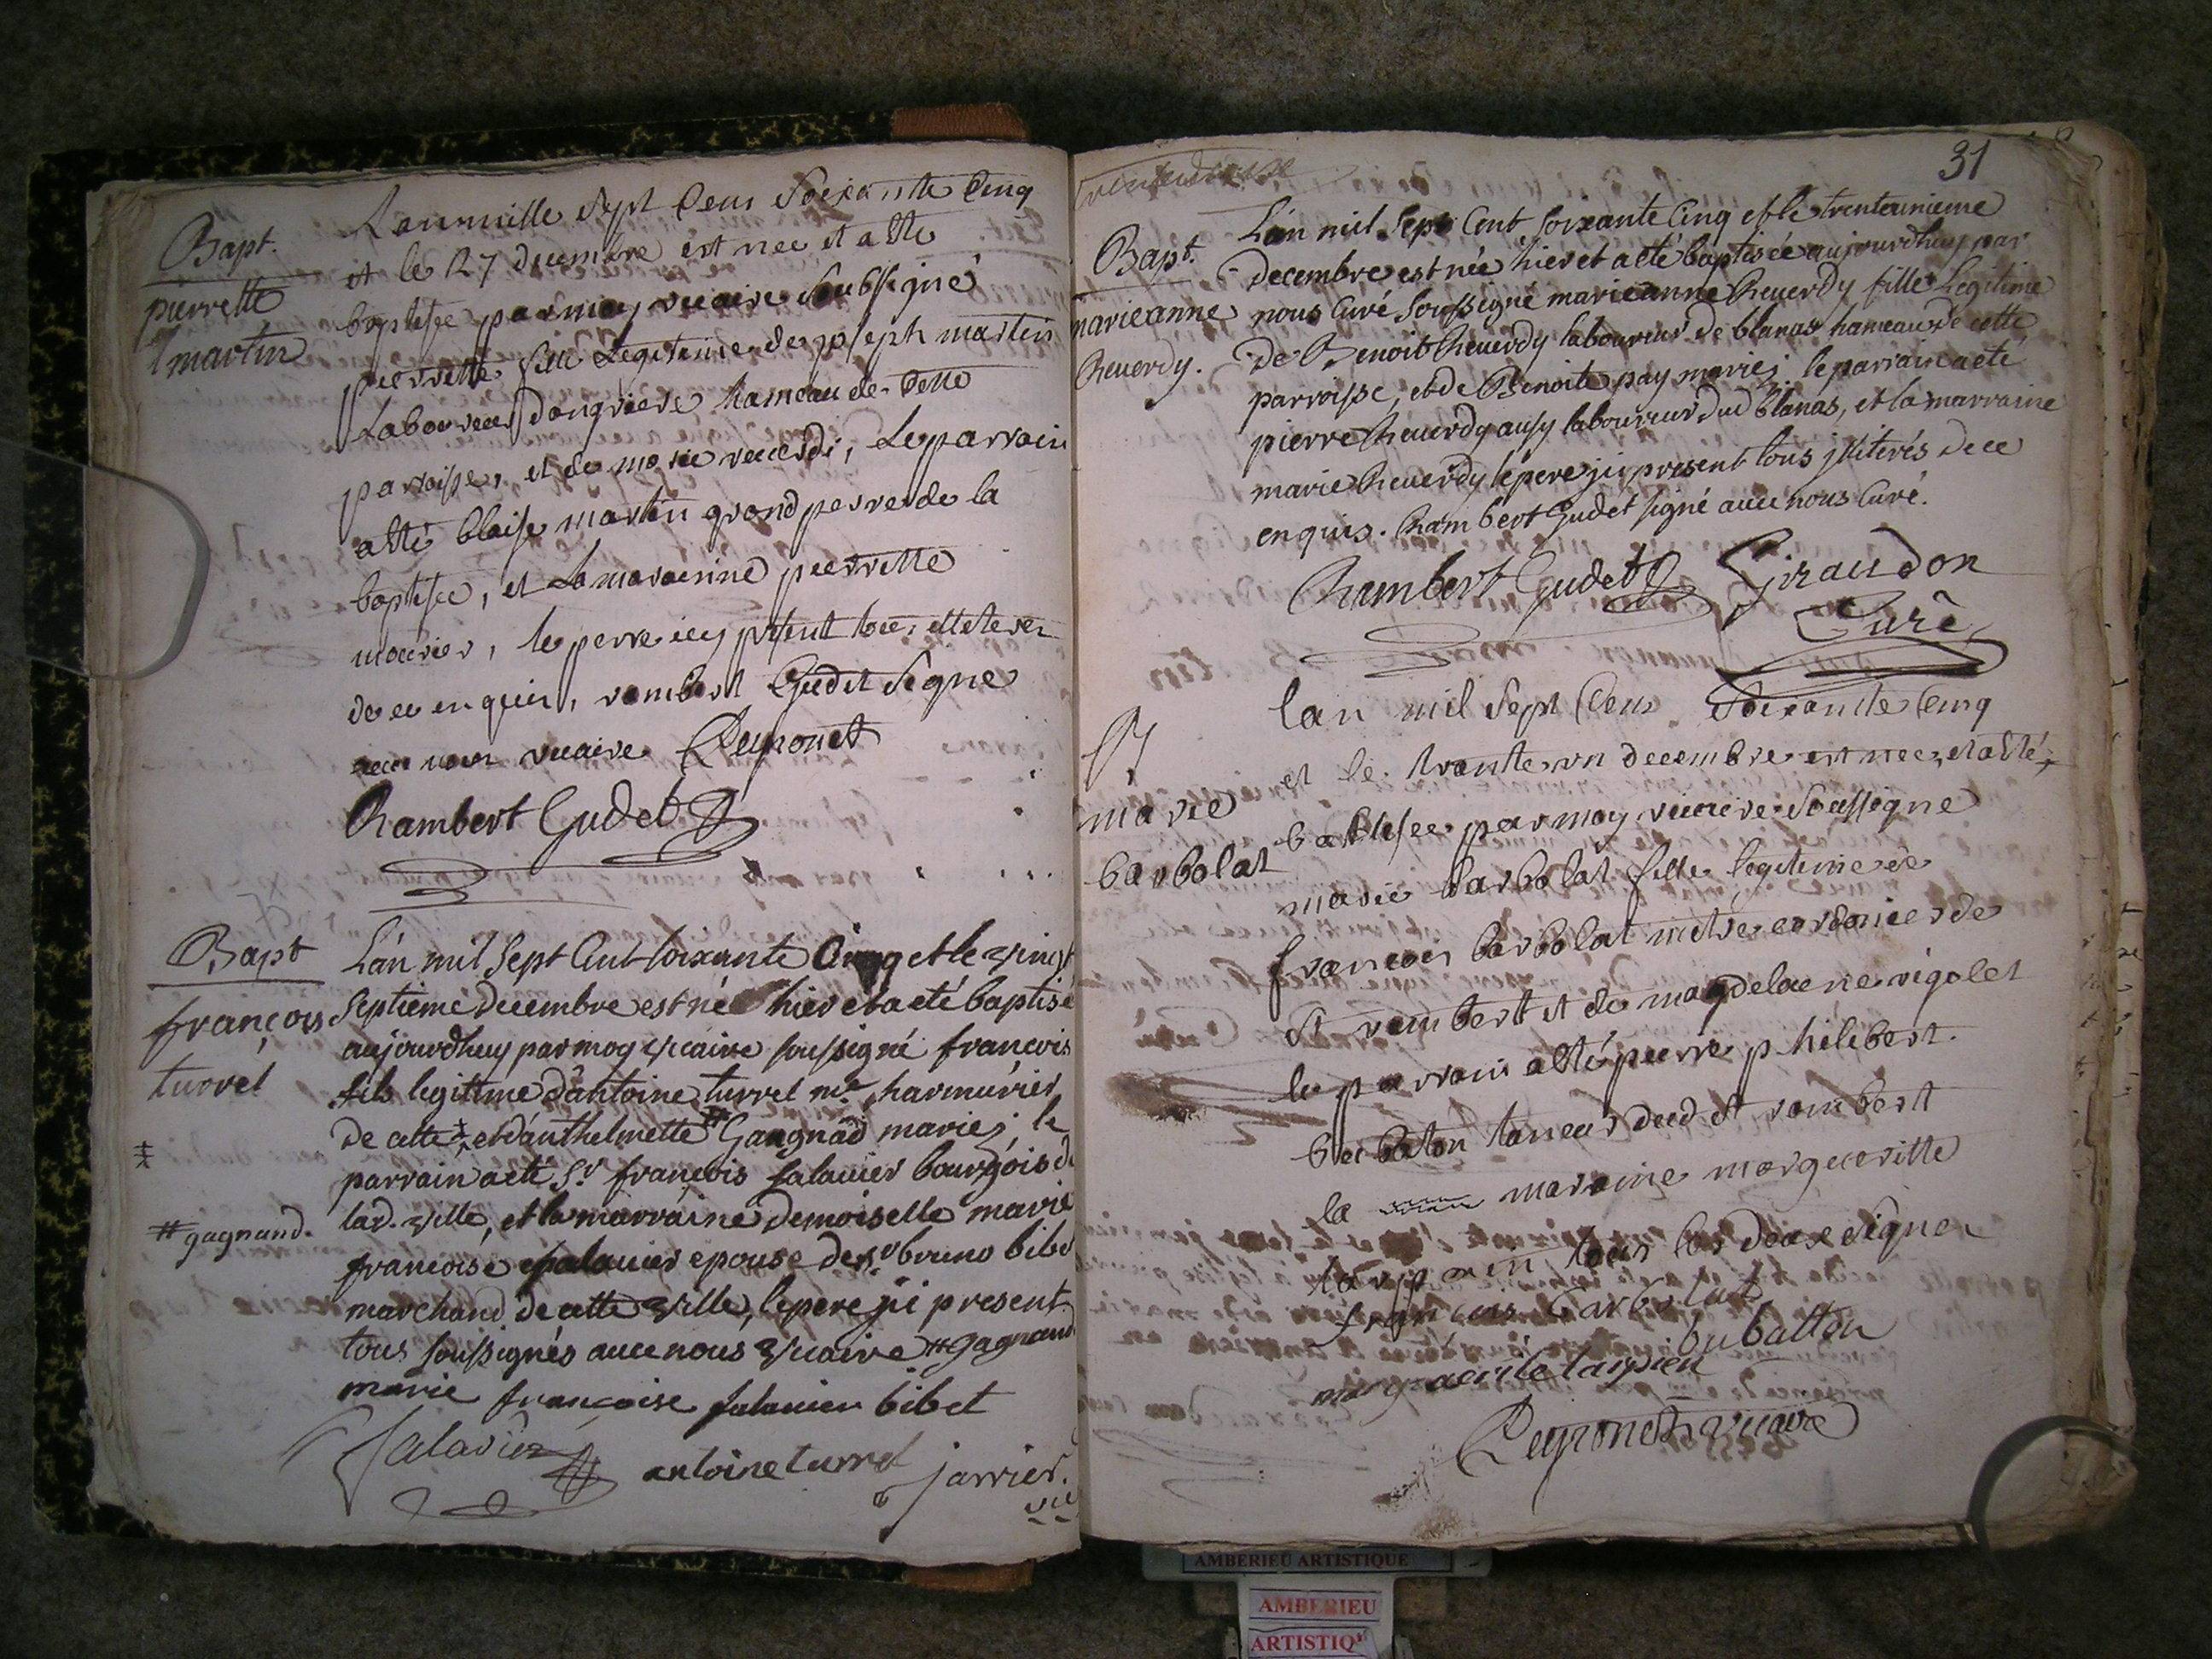 Bapt.
pierrette
martin
Lan mille Sept Cens Soixante Cinq
et le 27 decembre est nee et a ette
baptisee par moy vicaire Soubsigné
pierrette fille Legitime de joseph martin
Laboureur dangriere hameau de Cette
paroisse, et de marie reverdi, Le parrain
a ettè blaise martin grand perre de la
baptisee, et La maraine pierrette
mourier, le perre icy présent tous
de ce enquis, rambert Gudet Signe
avec nous vicaire Peyronet
Rambert Gudet
Bapt
françois
turrel
L'an mil Sept Cent soixante Cinq et le vingt
Septieme decembre est né hier et a eté baptisé
aujourdhuy par moy vicaire soussigné francois
fils legittime d'antoine turrel me. harmurier
de cette ‡ et d'anthelmette # Gangnad mariés, le
parrain a eté Sr. françois salavier bourgois de
lad. ville, et la marraine demoiselle marie
francoise salavier epouse de sr. bruno bibet
marchand de cette ville, le pere ici present
tous soussignés avec nous vicaire # gagnand
‡
# gagnand.
marie françoise salavier bibet
Salavier antoine turrel jarrier.
vic
trente et une
31
Bapt.
marieanne
Reverdy.
L'an mil Sept Cent soixante Cinq et le trenteunieme
decembre est née hier et a eté baptisée aujourdhuy par
nous Curé Soussigné marieanne Reverdy fille Legitime
de Benoit Reverdy laboureur de blanas hameau de cette
parroisse, et de Benoite pay mariés, le parrain a eté
pierre Reverdy ausy laboureur dud blanas, et la marraine
marie Reverdy le pere ici présent tous illiterés de ce
enquis. Rambert Gudet signé avec nous Curé.
Rambert Gudet Giraudon
Curè
B
marie
barbolat
lan mil Sept Cens Soixante Cinq
et le trante un decembre est nee, et a etté
batisee par moy vicaire Soussigne
marie barbolat fille legitime de
francois barbolat mètre cordonier de
St rambert et de magdelaene rigolet
le parrain a etté pierre philibert
bubaton taneur dud St rambert
la maraine margueritte
tarpin tous les deux Signer
françois barbolat
bubatton
marguerite tarpien
Peyronet vicaire
AMBERIEU ARTISTIQUE
AMBERIEU
ARTISTIQ